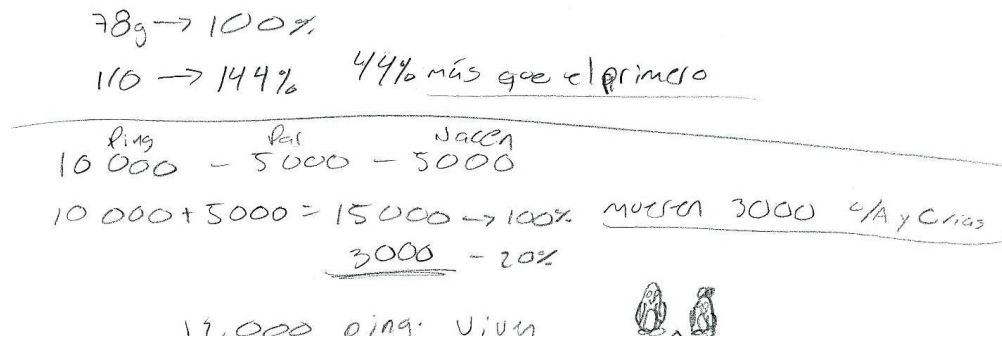 78g → 100%
110 → 144% 44% más que el primero
Ping Par Nacen
10 000 - 5000 - 5000
10 000 + 5000 = 15000 → 100% mueren 3000 c/A y Crias
3000 - 20%
12.000 ping. viven